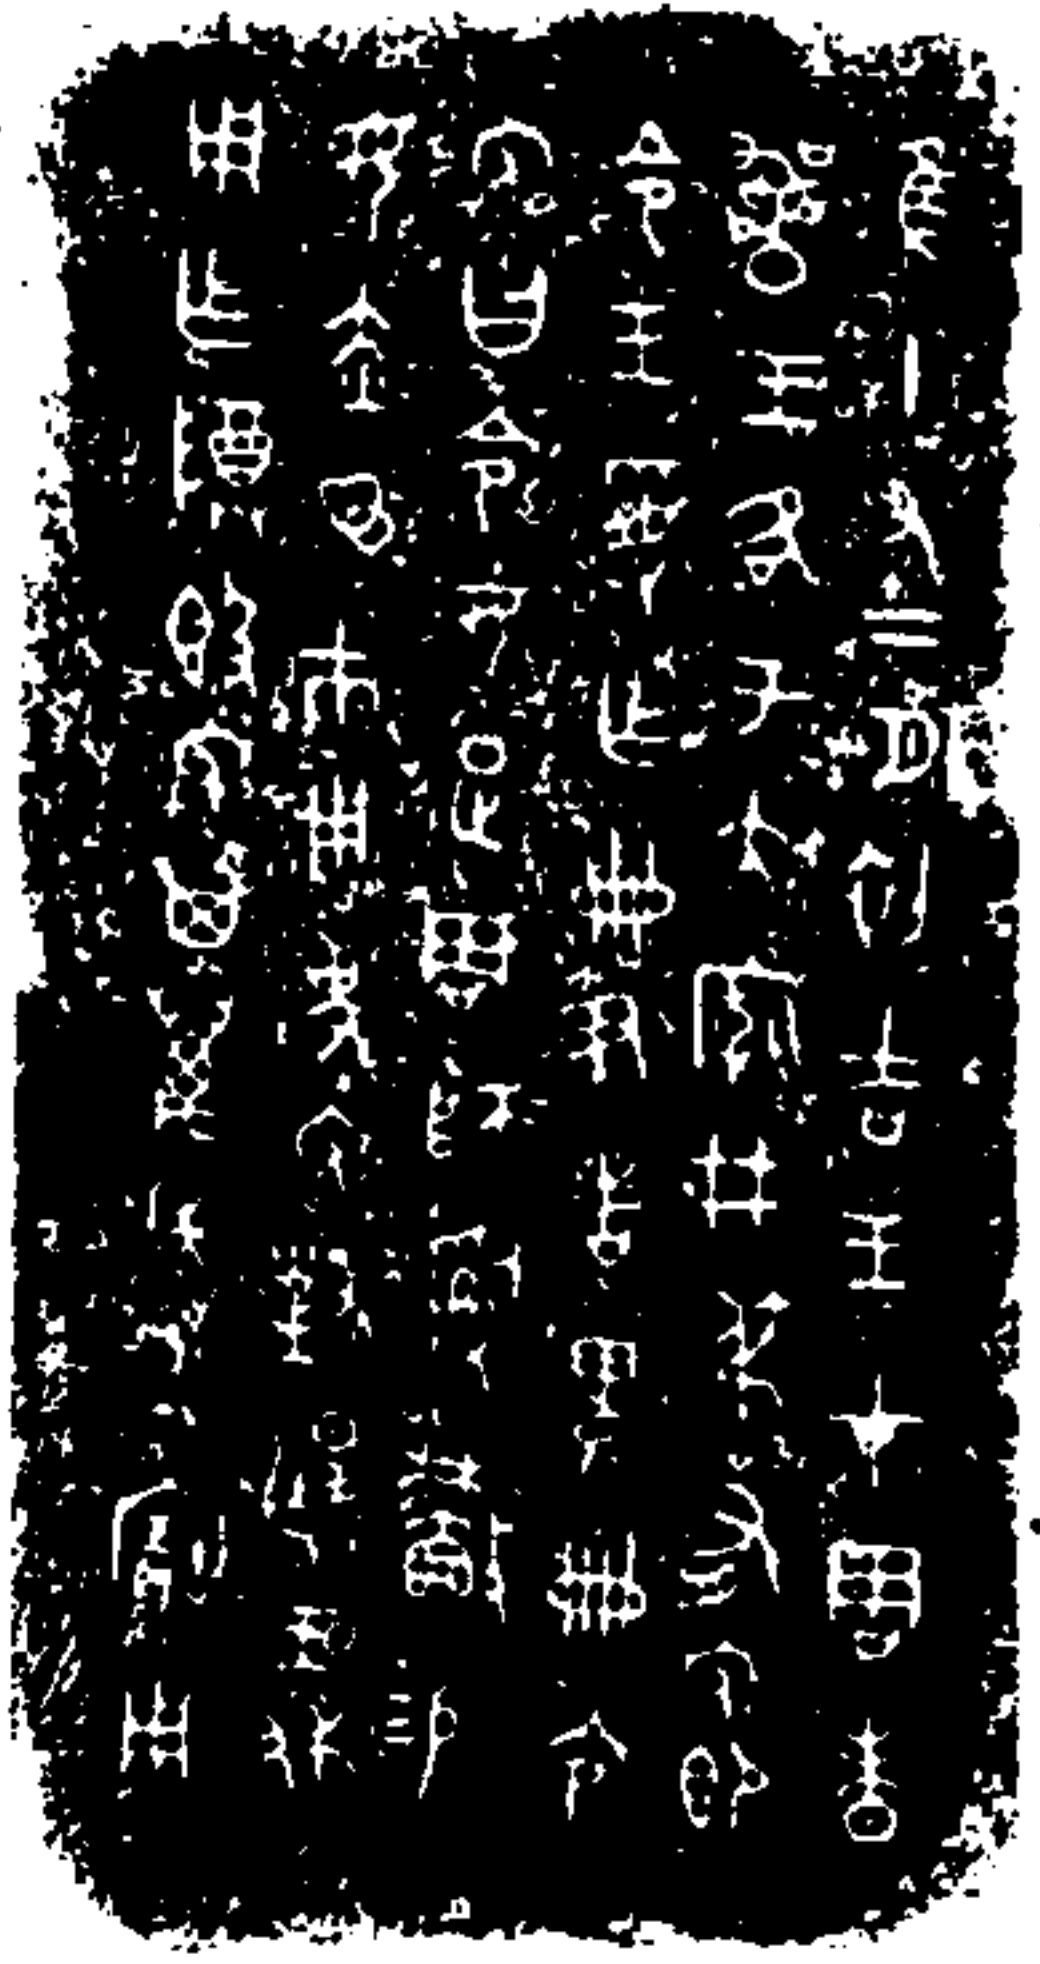 隹十又二月初吉王才周昧
爽王各于大廟井叔有免即
令王受乍冊尹者卑冊令
免曰令女疋周師𤔲歛易
女赤⊖巿用事免對揚王休
用乍尊𣪘免其萬年永寶用